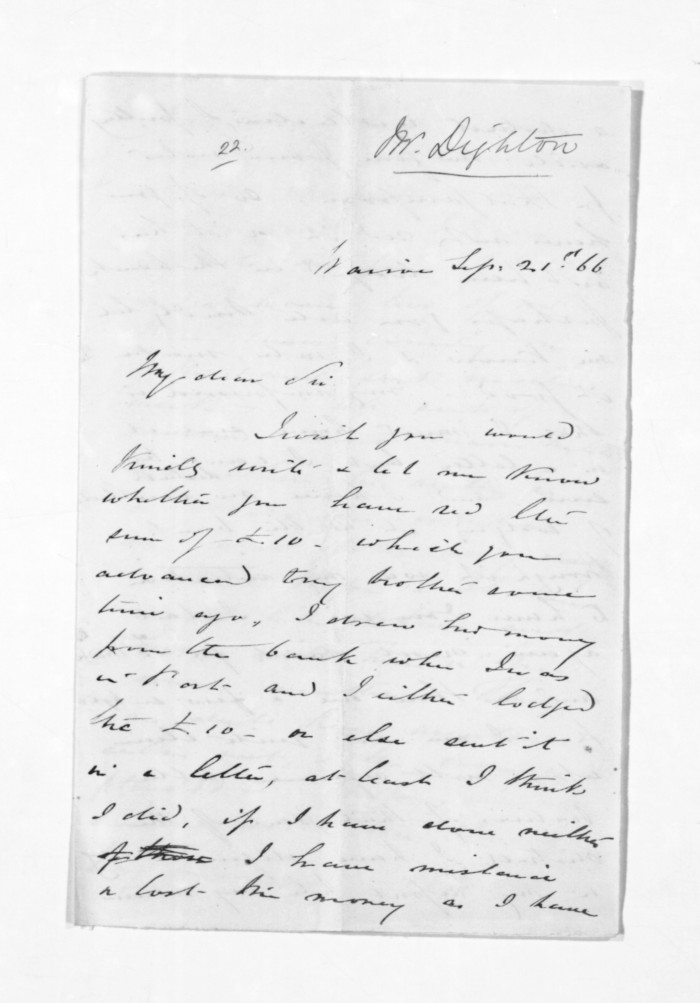 22.
Mr. Dighton
Wairoa Sep. 21st. 66
My dear Sir
I wish you would
kindly write & let me know
whether you have recd the
sum of £10 - which you
advanced to my brother some
time ago, I drew his money
from the bank when I was
in Port and I either lodged
the £10 - or else sent it
in a letter, at least I think
I did, if I have done neither
of those I have
or lost the money as I have